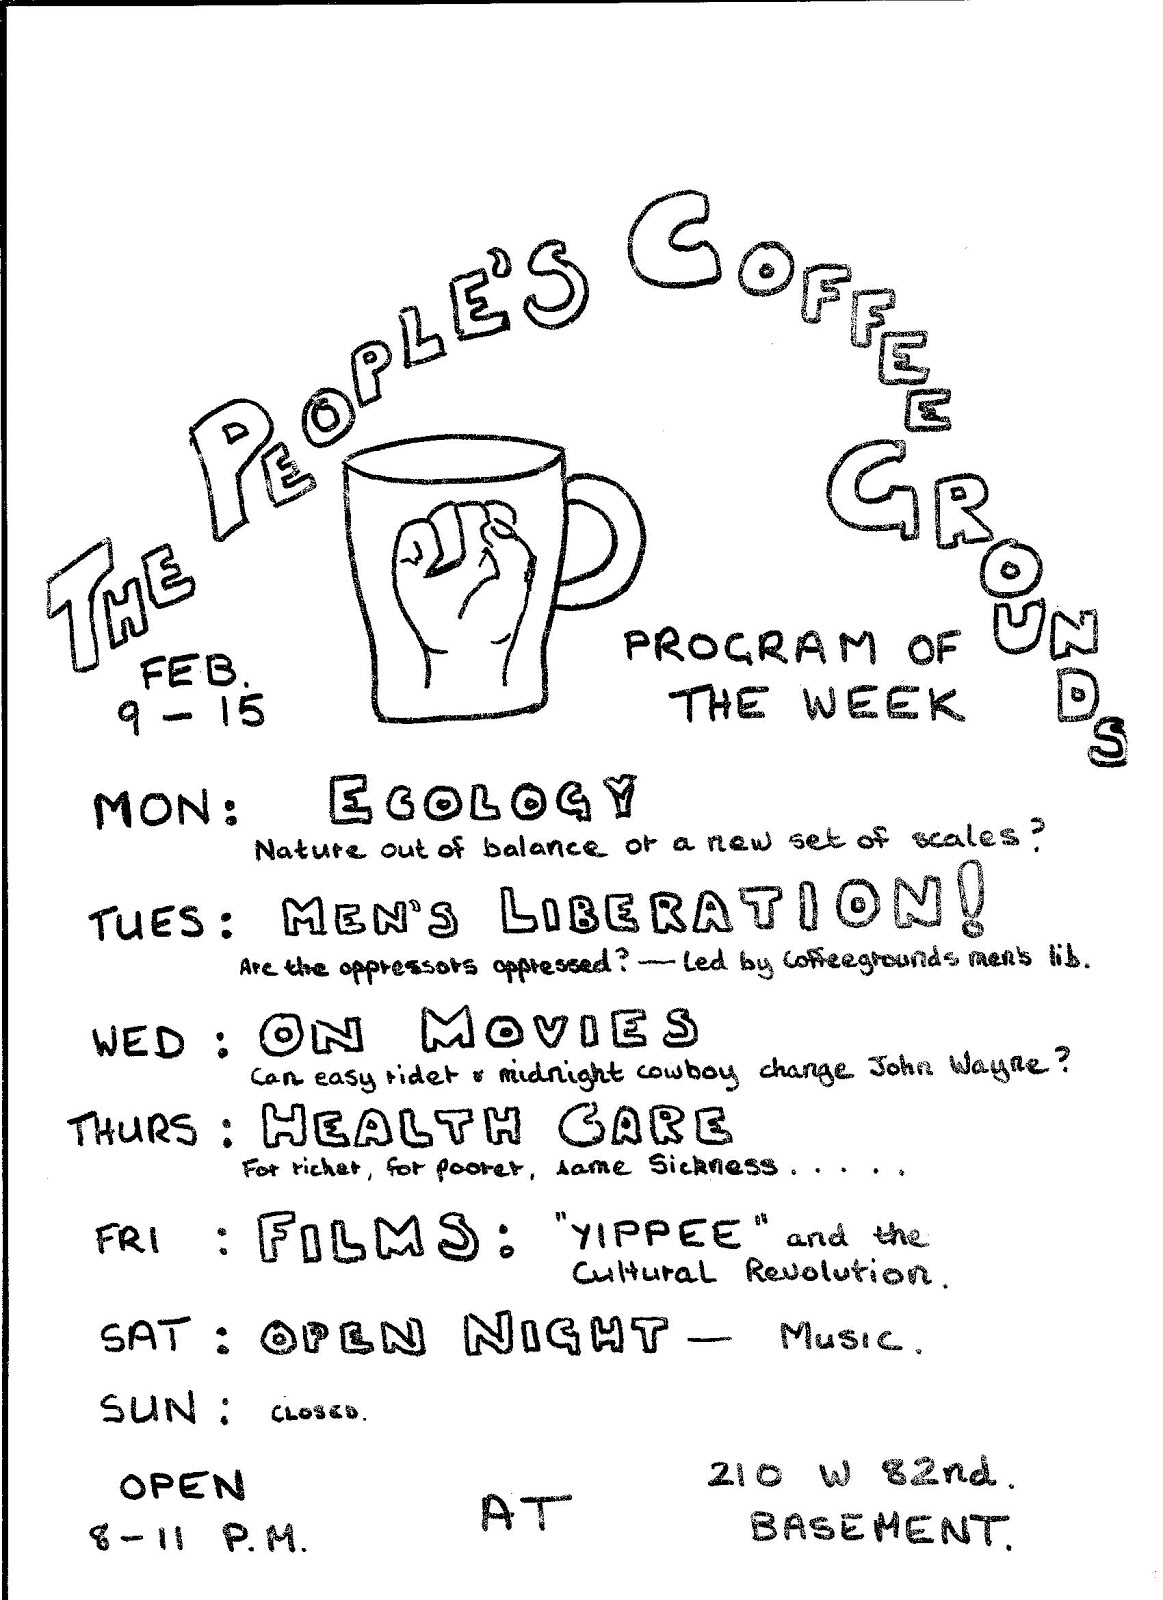 THE PEOPLE'S COFFEE GROUNDS
FEB.
9 - 15
PROGRAM OF
THE WEEK
MON: ECOLOGY
Nature out of balance or a new set of scales?
TUES: MEN'S LIBERATION!
Are the oppressors oppressed? — Led by Coffeegrounds men's lib.
WED : ON MOVIES
Can easy rider & midnight cowboy change John Wayne?
THURS : HEALTH CARE
For richer, for poorer, same Sickness . . . . .
FRI : FILMS: "YIPPEE" and the
Cultural Revolution.
SAT : OPEN NIGHT — Music.
SUN : CLOSED.
OPEN
8-11 P.M.
AT
210 W 82nd.
BASEMENT.